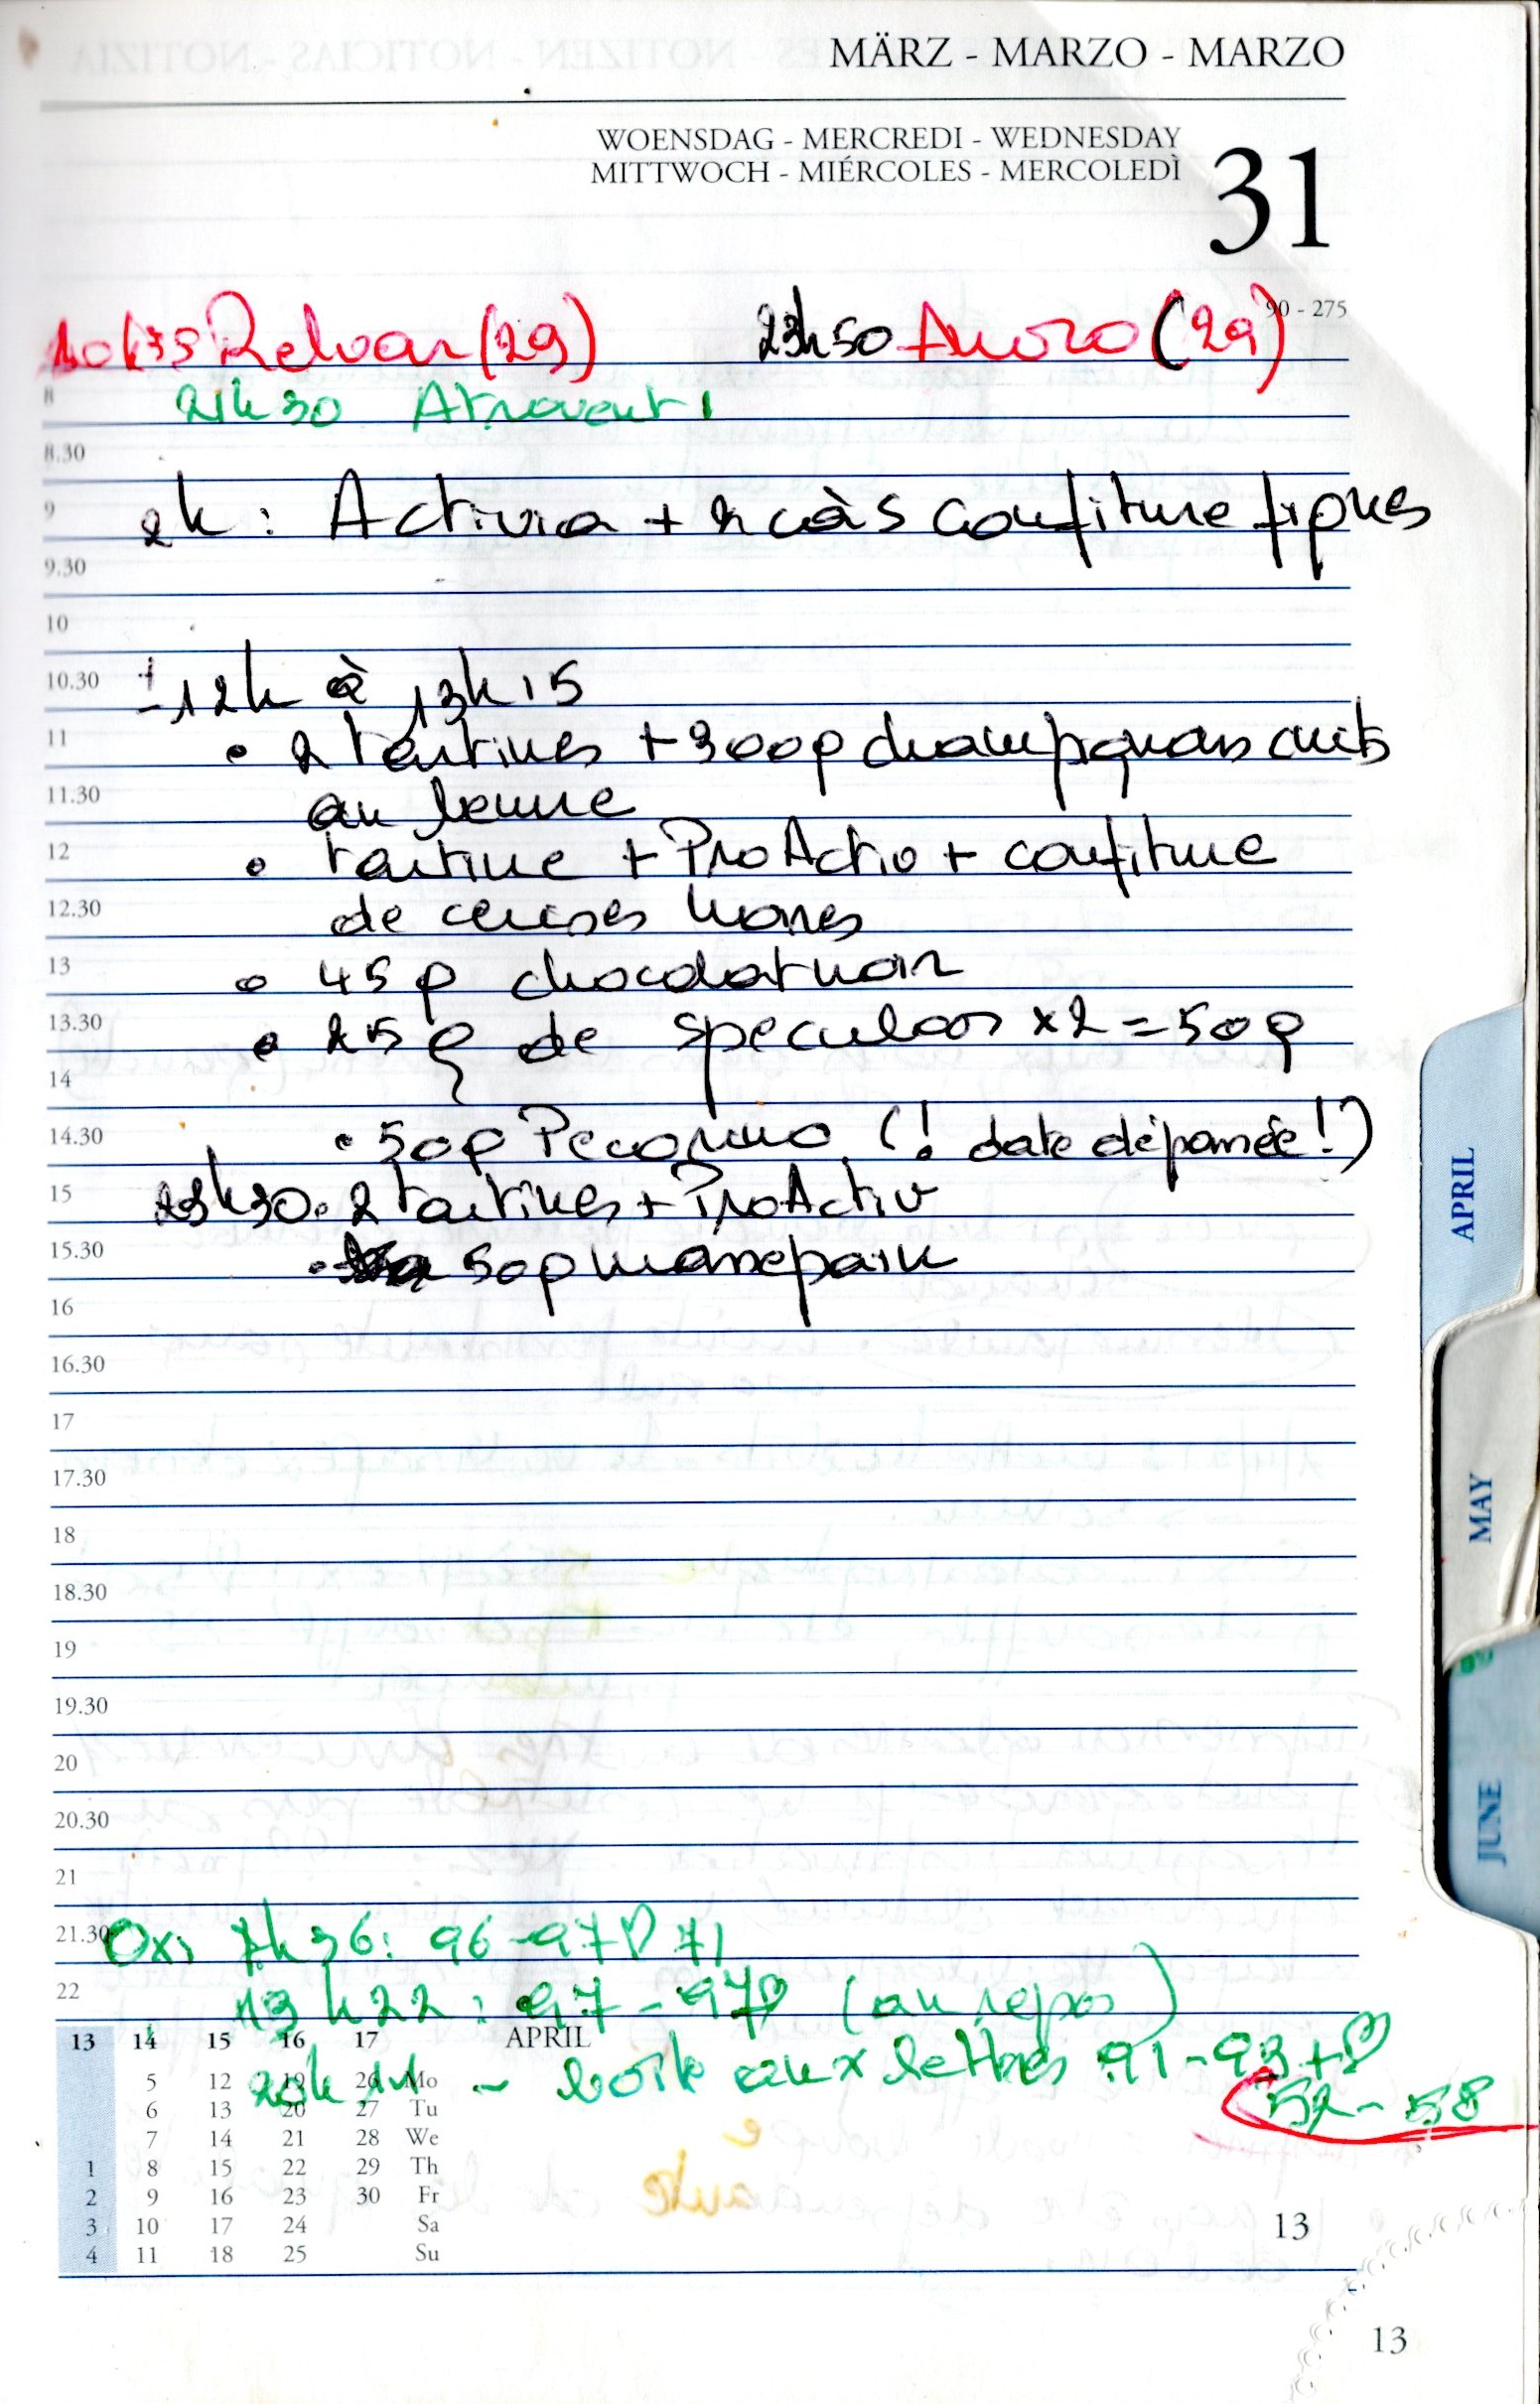 MÄRZ - MARZO - MARZO
WOENSDAG - MERCREDI - WEDNESDAY
MITTWOCH - MIÉRCOLES - MERCOLEDÌ
31
90 - 275
Relvar (29) 23h50 Auoro (29)
8 21h30 Atrovent 1
8.30
9 2h : Activia + 2 càs confiture figues
9.30
10
10.30 - 12h à 13h15
11 • 2 tartines + 300g champignons cuits
11.30 au beurre
12 • tartine + ProActiv + confiture
12.30 de cerises noires
13 • 45 g chocolat noir
13.30 • 25 g de speculoos x 2 = 50 g
14
14.30 • 50g Pecorino (! date dépassée !)
15 23h30 • 2 tartines + ProActiv
15.30 • 50g massepain
16
16.30
17
17.30
18
18.30
19
19.30
20
20.30
21
21.30 Oxi 7h36 : 96-97 ♡ 71
22 13h22 : 97-97 ♡ (au repos)
13 14 15 16 17 APRIL
20h - boîte aux lettres 91-93 + ♡
52-58
5 12 19 26 Mo
6 13 20 27 Tu
7 14 21 28 We
1 8 15 22 29 Th
2 9 16 23 30 Fr
3 10 17 24 Sa
4 11 18 25 Su
13
13
APRIL
MAY
JUNE